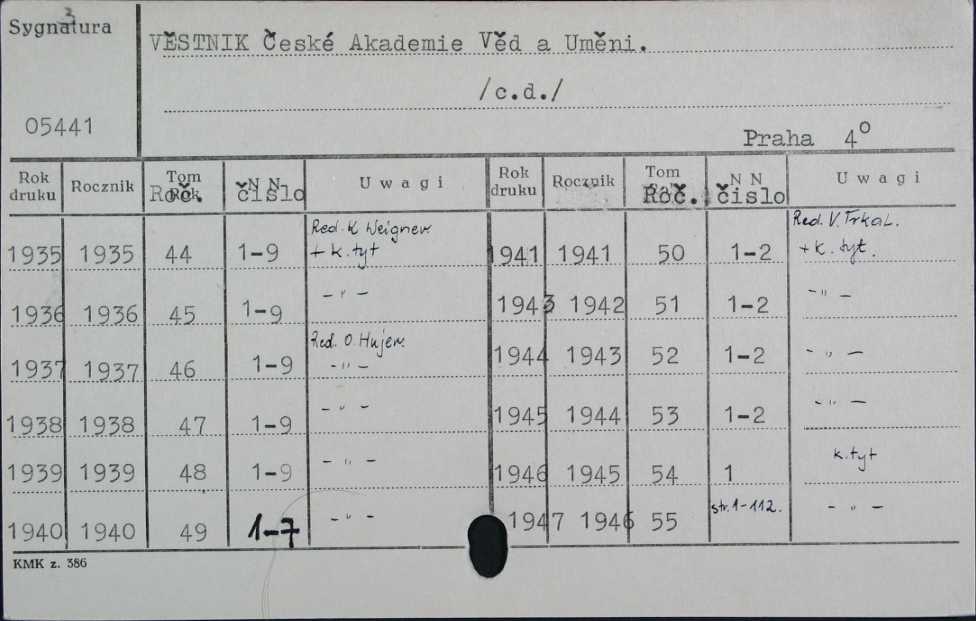 Sygnatura 2
VĚSTNIK České Akademie Věd a Uměni.
/c.d./
05441
Praha 4°
Rok druku | Rocznik | Tom Rok Roč. | N N číslo | Uwagi | Rok druku | Rocznik | Tom Roč. | N N čislo | Uwagi
1935 | 1935 | 44 | 1-9 | Red. K. Weigner + k. tyt | 1941 | 1941 | 50 | 1-2 | Red. V. Trkal. + k. tyt.
1936 | 1936 | 45 | 1-9 | - " - | 1943 | 1942 | 51 | 1-2 | - " -
1937 | 1937 | 46 | 1-9 | Red. O. Hujer. - " - | 1944 | 1943 | 52 | 1-2 | - " -
1938 | 1938 | 47 | 1-9 | - " - | 1945 | 1944 | 53 | 1-2 | - " -
1939 | 1939 | 48 | 1-9 | - " - | 1946 | 1945 | 54 | 1 | k. tyt
1940 | 1940 | 49 | 1-7 | - " - | 1947 | 1946 | 55 | str. 1-112. | - " -
KMK z. 386